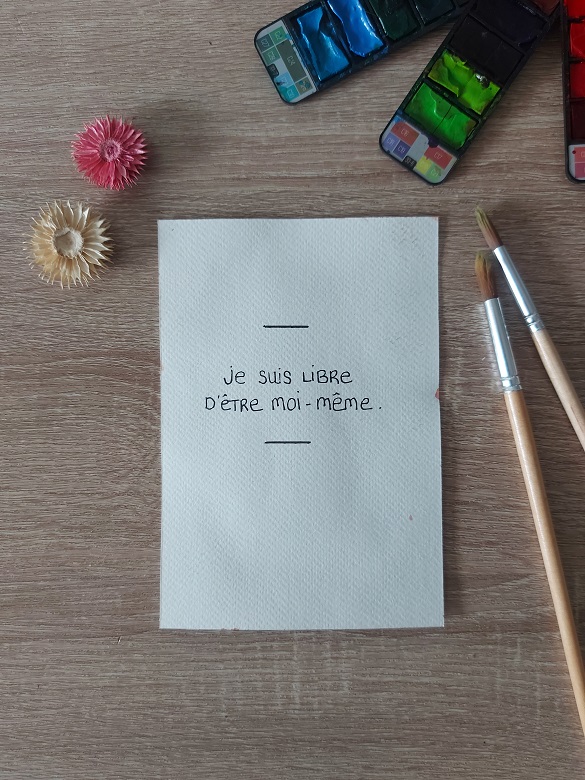 Je suis LiBRe
D'êTRe moi-même.